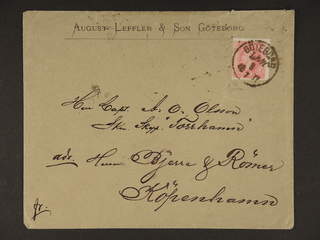 AUGUST LEFFLER & SON GÖTEBORG
GÖTEBORG
LBR
Herr Capt. A. O. Olsson
"Torrhamn"
adr. Herrn Bjerre & Römer
Köpenhamn